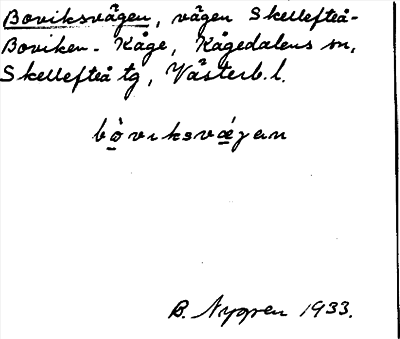 Boviksvägen, vägen Skellefteå-
Boviken - Kåge, Kågedalens sn,
Skellefteå tg, Västerb. l.
bò̱viksvǽ̱gan
B. Nygren 1933.